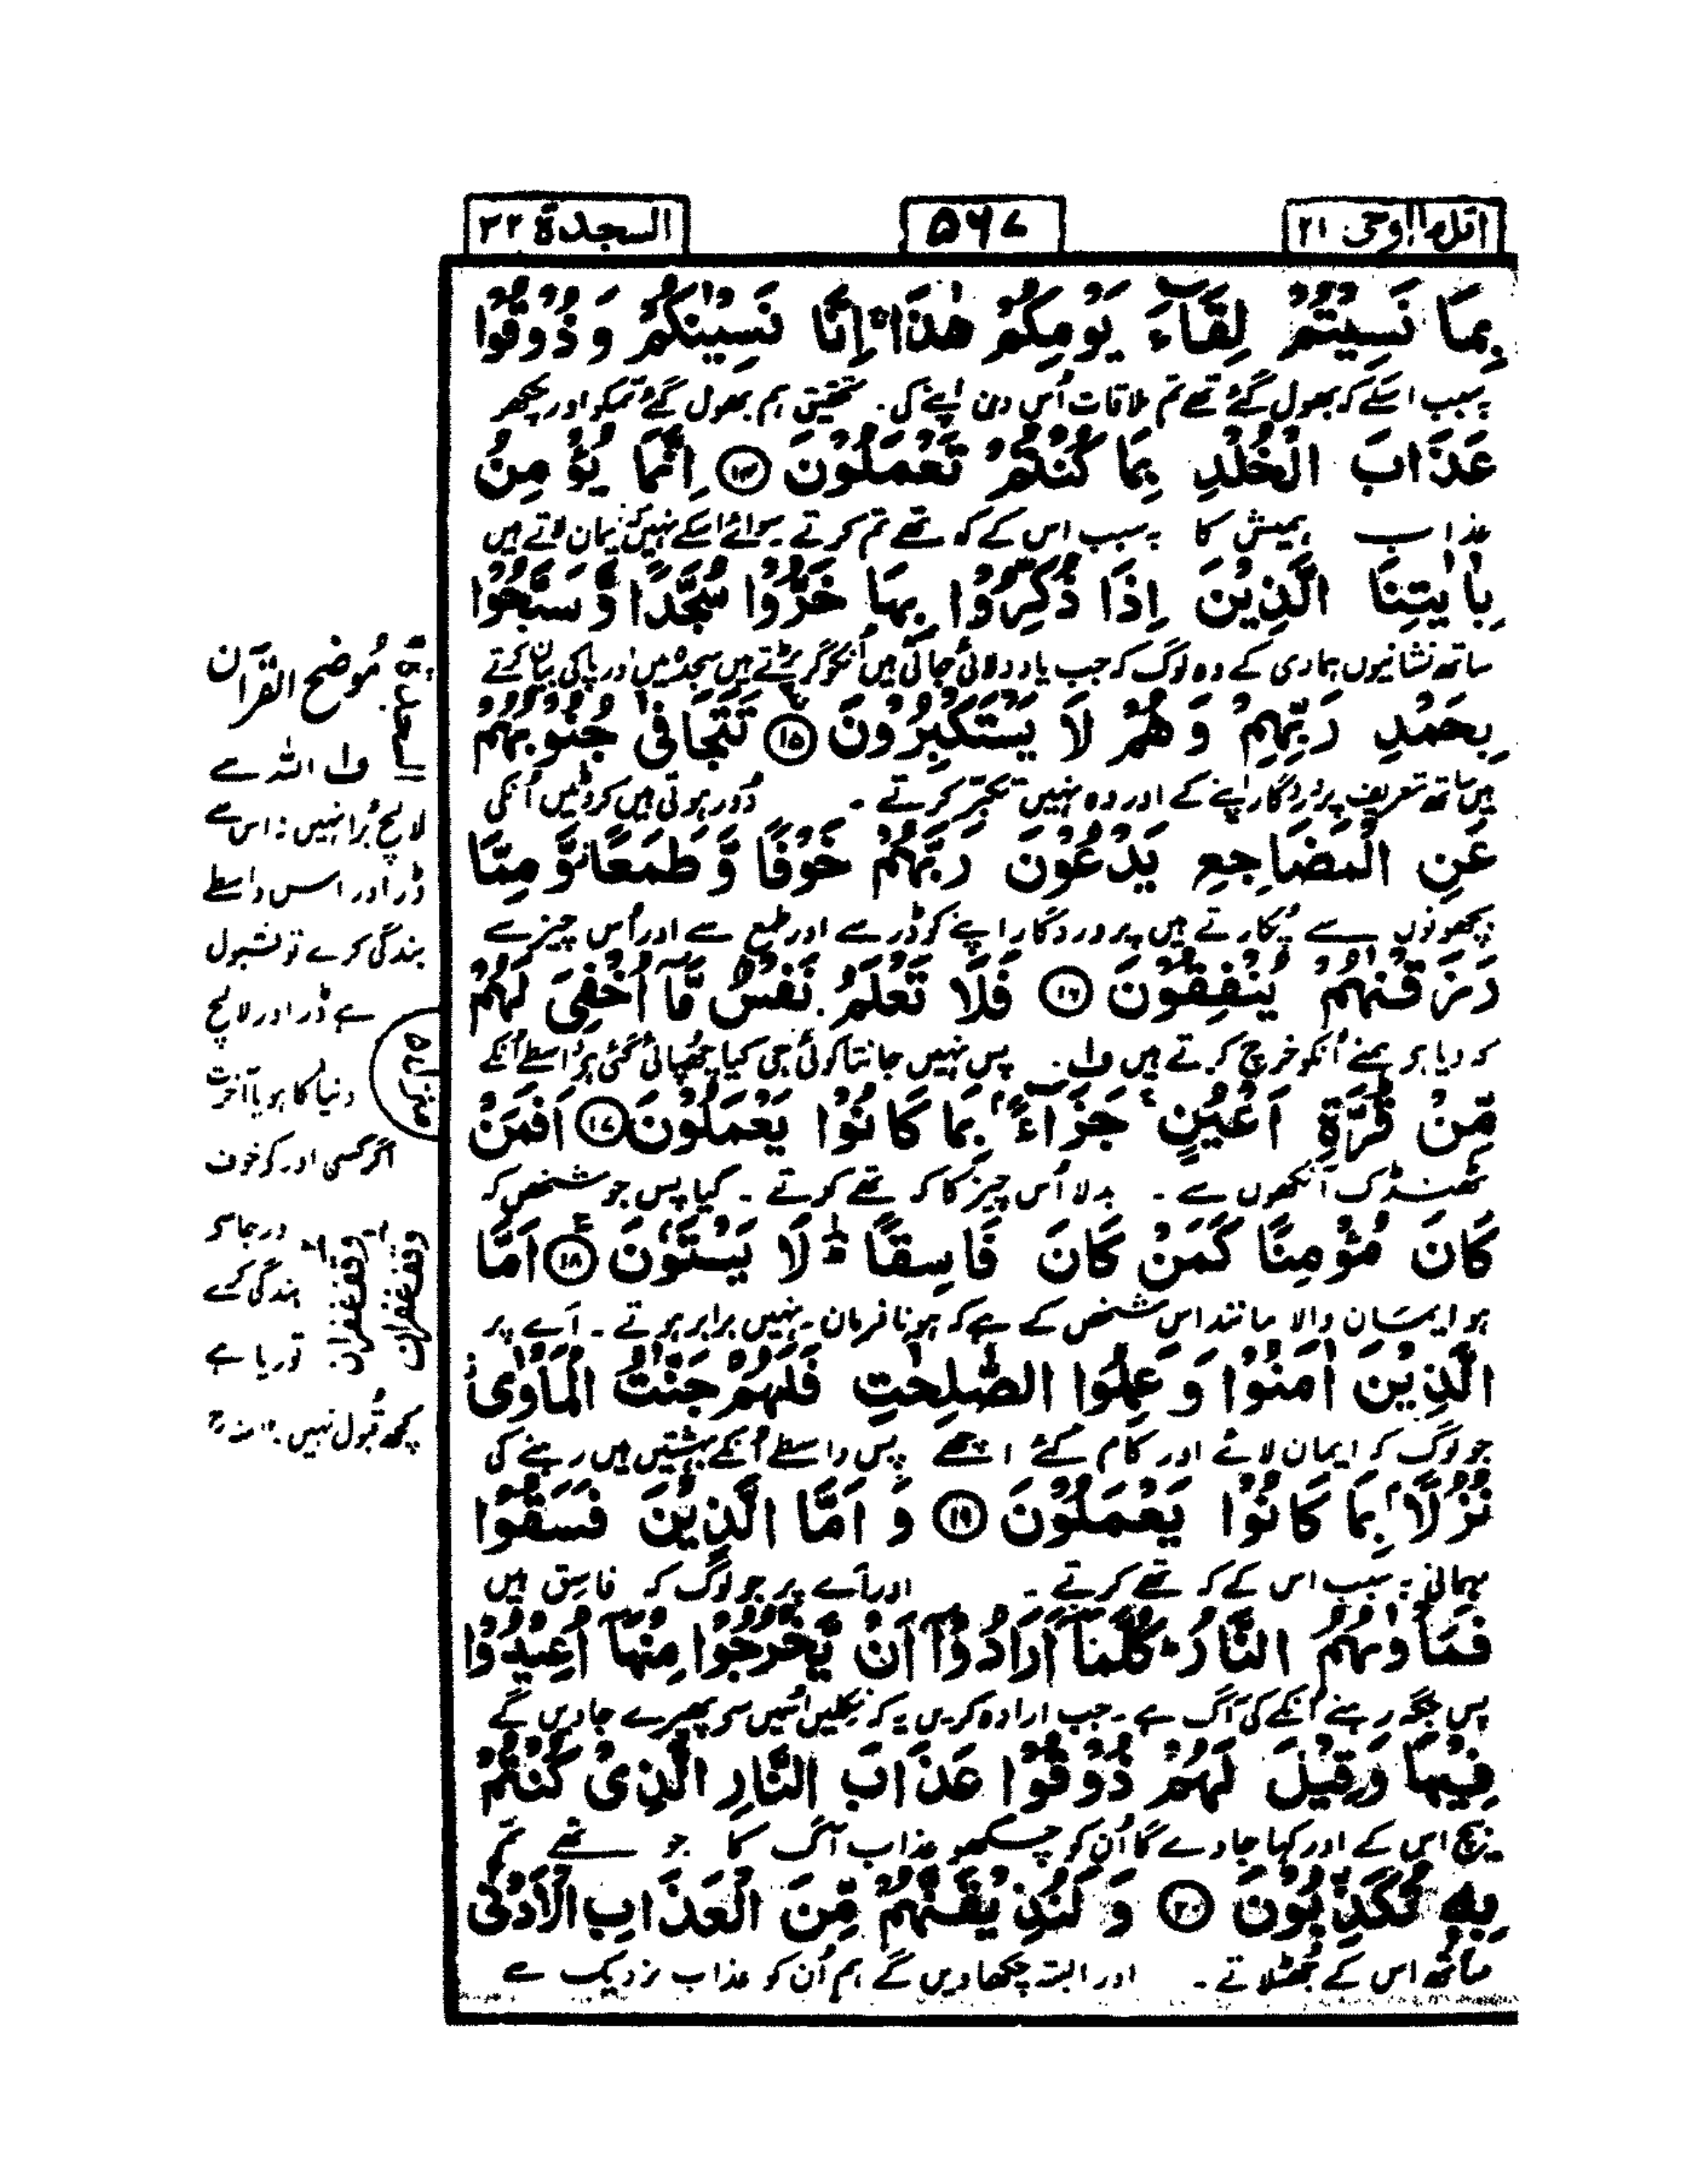 اتل ما اوحی ۲۱
۵۶۷
السجدة ۳۲
بِمَا نَسِيْتُمْ لِقَآءَ يَوْمِكُمْ هٰذَا ۚ اِنَّا نَسِيْنٰكُمْ وَ ذُوْقُوْا
بسبب اسکے کہ بھول گئے تھے تم ملاقات اُس دن اپنے کی۔ تحقیق ہم بھول گئے تمکو اور چکھو
عَذَابَ الْخُلْدِ بِمَا كُنْتُمْ تَعْمَلُوْنَ ۱۴ اِنَّمَا يُؤْمِنُ
عذاب ہمیش کا بسبب اس کے کہ تھے تم کرتے۔ سوائے اسکے نہیں کہ ایمان لاتے ہیں
بِاٰيٰتِنَا الَّذِيْنَ اِذَا ذُكِّرُوْا بِهَا خَرُّوْا سُجَّدًا وَّ سَبَّحُوْا
ساتھ نشانیوں ہماری کے وہ لوگ کہ جب یاد دلائی جاتی ہیں اُنکو گر پڑتے ہیں سجدہ میں اور پاکی بیان کرتے
بِحَمْدِ رَبِّهِمْ وَ هُمْ لَا يَسْتَكْبِرُوْنَ ۱۵ تَتَجَافٰى جُنُوْبُهُمْ
ہیں ساتھ تعریف پروردگار اپنے کے اور وہ نہیں تکبر کرتے۔ دُور ہوتی ہیں کروٹیں اُنکی
عَنِ الْمَضَاجِعِ يَدْعُوْنَ رَبَّهُمْ خَوْفًا وَّ طَمَعًا وَّ مِمَّا
بچھونوں سے پُکارتے ہیں پروردگار اپنے کو ڈر سے اور طمع سے اور اُس چیز سے
رَزَقْنٰهُمْ يُنْفِقُوْنَ ۱۶ فَلَا تَعْلَمُ نَفْسٌ مَّآ اُخْفِىَ لَهُمْ
کہ دیا ہم نے اُنکو خرچ کرتے ہیں ف۱۔ پس نہیں جانتا کوئی جی کیا چھپائی گئی ہے واسطے اُنکے
مِّنْ قُرَّةِ اَعْيُنٍ ۚ جَزَآءًۢ بِمَا كَانُوْا يَعْمَلُوْنَ ۱۷ اَفَمَنْ
ٹھنڈک آنکھوں سے۔ بدلا اُس چیز کا کہ تھے کرتے۔ کیا پس جو شخص کہ
كَانَ مُؤْمِنًا كَمَنْ كَانَ فَاسِقًا ۭ لَا يَسْتَوٗنَ ۱۸ اَمَّا
ہو ایمان والا مانند اس شخص کے ہے کہ ہو نافرمان۔ نہیں برابر ہوتے۔ اَے پر
الَّذِيْنَ اٰمَنُوْا وَ عَمِلُوا الصّٰلِحٰتِ فَلَهُمْ جَنّٰتُ الْمَاْوٰى ۡ
جو لوگ کہ ایمان لائے اور کام کئے اچھے پس واسطے اُنکے بہشتیں ہیں رہنے کی
نُزُلًاۢ بِمَا كَانُوْا يَعْمَلُوْنَ ۱۹ وَ اَمَّا الَّذِيْنَ فَسَقُوْا
مہمانی بسبب اس کے کہ تھے کرتے۔ اور اَے پر جو لوگ کہ فاسق ہیں
فَمَاْوٰىهُمُ النَّارُ ۭ كُلَّمَآ اَرَادُوْٓا اَنْ يَّخْرُجُوْا مِنْهَآ اُعِيْدُوْا
پس جگہ رہنے اُنکے کی آگ ہے۔ جب ارادہ کریں یہ کہ نکلیں اُسمیں سے پھیرے جاویں گے
فِيْهَا وَ قِيْلَ لَهُمْ ذُوْقُوْا عَذَابَ النَّارِ الَّذِىْ كُنْتُمْ
بیچ اس کے اور کہا جاوے گا اُن کو چکھو عذاب آگ کا جو تھے تم
بِهٖ تُكَذِّبُوْنَ ۲۰ وَ لَنُذِيْقَنَّهُمْ مِّنَ الْعَذَابِ الْاَدْنٰى
ساتھ اس کے جھٹلاتے۔ اور البتہ چکھاویں گے ہم اُن کو عذاب نزدیک سے
السجدۃ
مُوضح القرآن
ف۱ اللہ سے
لالچ بُرا نہیں: اس سے
ڈر اور اس واسطے
بندگی کرے تو قبول
ہے ڈر اور لالچ
دنیا کا ہو یا آخرت
اگر کسی اور کے خوف
در جا سے
بندگی کرے
تو ریا ہے
کچھ قبول نہیں۔ ۱۲ منہ رح
منزل ۵
وقف غفران
وقف غفران